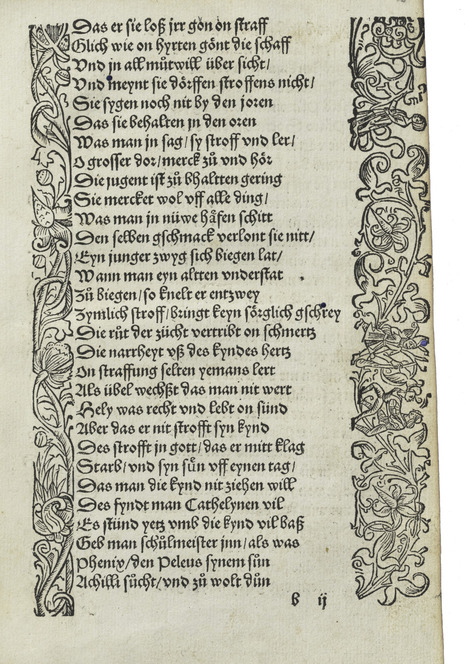 Das er sie loß jrr gön on straff
Glich wie on hyrten gönt die schaff
Vnd in all můtwill über sicht/
Vnd meynt sie dörffen stroffens nicht/
Sie sygen noch nit by den joren
Das sie behalten in den oren
Was man in sag/ sy stroff vnd ler/
O grosser dor/ merck zů vnd hör
Die jugent ist zů bhaltten gering
Sie mercket wol vff alle ding/
Was man in nüwe häfen schitt
Den selben gschmack verlont sie nitt/
Eyn junger zwyg sich biegen lat/
Wann man eyn altten vnderstat
Zů biegen/ so knelt er entzwey
Zymlich stroff/ bringt keyn sörglich gschrey
Die růt der zücht vertribt on schmertz
Die narrheyt vß des kyndes hertz
On straffung selten yemans lert
Als übel wechßt das man nit wert
Hely was recht vnd lebt on sünd
Aber das er nit strofft syn kynd
Des strofft jn gott/ das er mitt klag
Starb/ vnd syn sün vff eynen tag/
Das man die kynd nit ziehen will
Des fyndt man Cathelynen vil
Es stünd yetz vmb die kynd vil baß
Geb man schůlmeister jnn/ als was
Phenix/ den Peleus synem sůn
Achilli sůcht/ vnd zů wolt důn
b ij